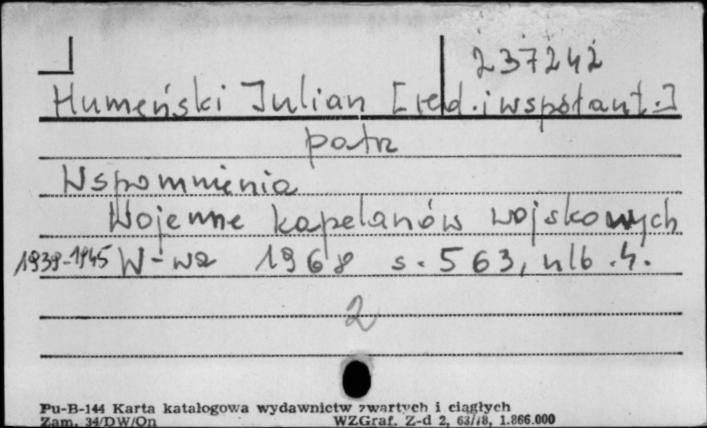 237242
Humeński Julian [red. i współaut.]
patrz
Wspomnienia
Wojenne kapelanów wojskowych
1939-1945 W-wa 1968 s. 563, nlb. 4.
2
Pu-B-144 Karta katalogowa wydawnictw zwartych i ciągłych
Zam. 34/DW/On WZGraf. Z-d 2, 63/78, 1.866.000